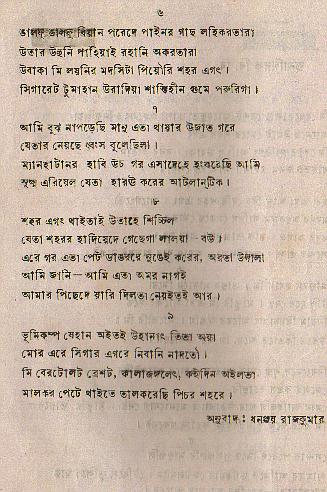 ৬
ডালফু ডালফু বিয়ান পরেদে পাইনর গাছ লহিকরতারা
উতার উহুনি পাহিয়াই রহানি অকরতারা
উবাকা মি লয়নির মদসিটা পিয়োরি শহর এগৎ।
সিগারেট টুমাহান উরাদিয়া শান্তিহীন গুমে পরুরিগা।
৭
আমি বুঝ নাপড়েছি মানু এতা থায়ার উজাত গরে
যেতার নেয়ছে ধ্বংস বুলেছিলা।
ম্যানহাটানর হাবি উচ গর এসাদেহে হংকরেছি আমি
সূক্ষ্ম এরিয়েল যেতা হারৌ করের আটলান্টিক।
৮
শহর এগৎ থাইতাই উতাহে শিচ্চিল
যেতা শহরর হাদিয়েদে গেছেগা লালয়া—বউ।
এরে গর এতা পেট ডাঙরাৱে মুঙেই করের, অরতা উদালা
আমি জানি—আমি এতা অমর নাগই
আমার পিছেদে য়ারি দিলতা নেয়ইতই আর।
৯
ভূমিকম্প যেহান অইতই উহানাৎ তিতা অয়া
মোর এরে সিগার এগরে নিবানি নাদতৌ।
মি বেরটোলট ব্রেশট, কালাজঙ্গলেৎ, কইদিন অইলতা
মালকর পেটে থাইতে তালকরেছি পিচর শহরে।
অনুবাদ : ধনঞ্জয় রাজকুমার